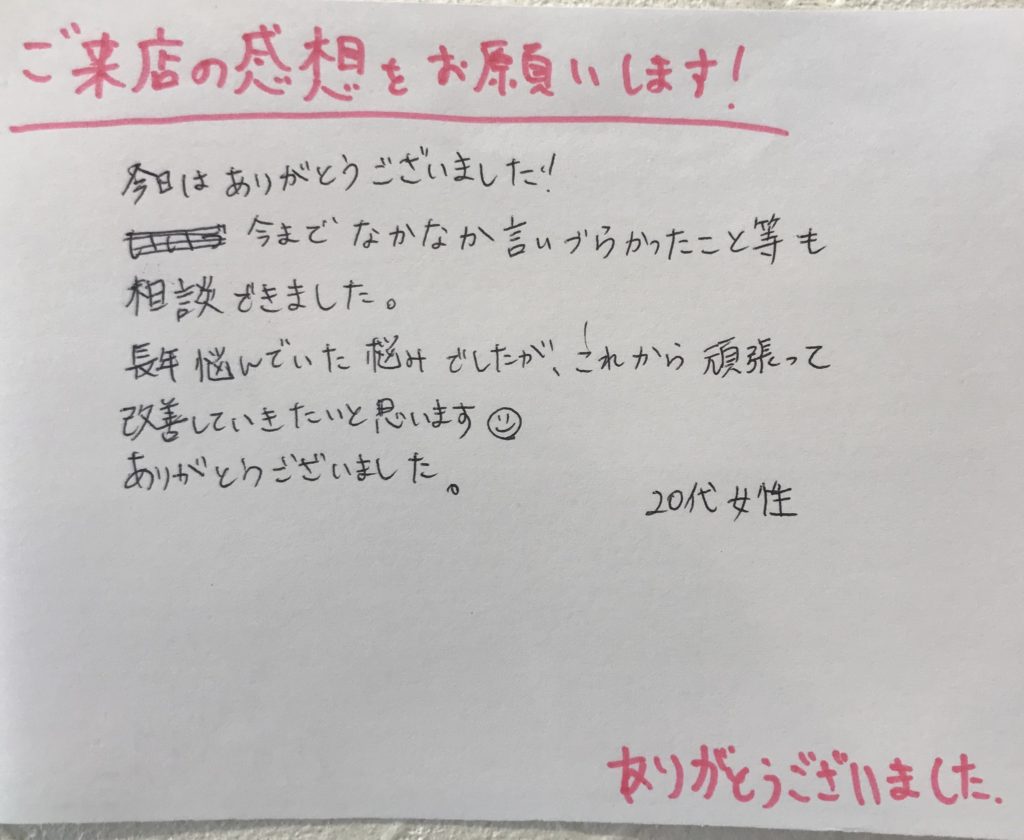 ご来店の感想をお願いします!
今日はありがとうございました!!
今までなかなか言いづらかったこと等も
相談できました。
長年悩んでいた悩みでしたが、これから頑張って
改善していきたいと思います☺
ありがとうございました。
20代女性
ありがとうございました.